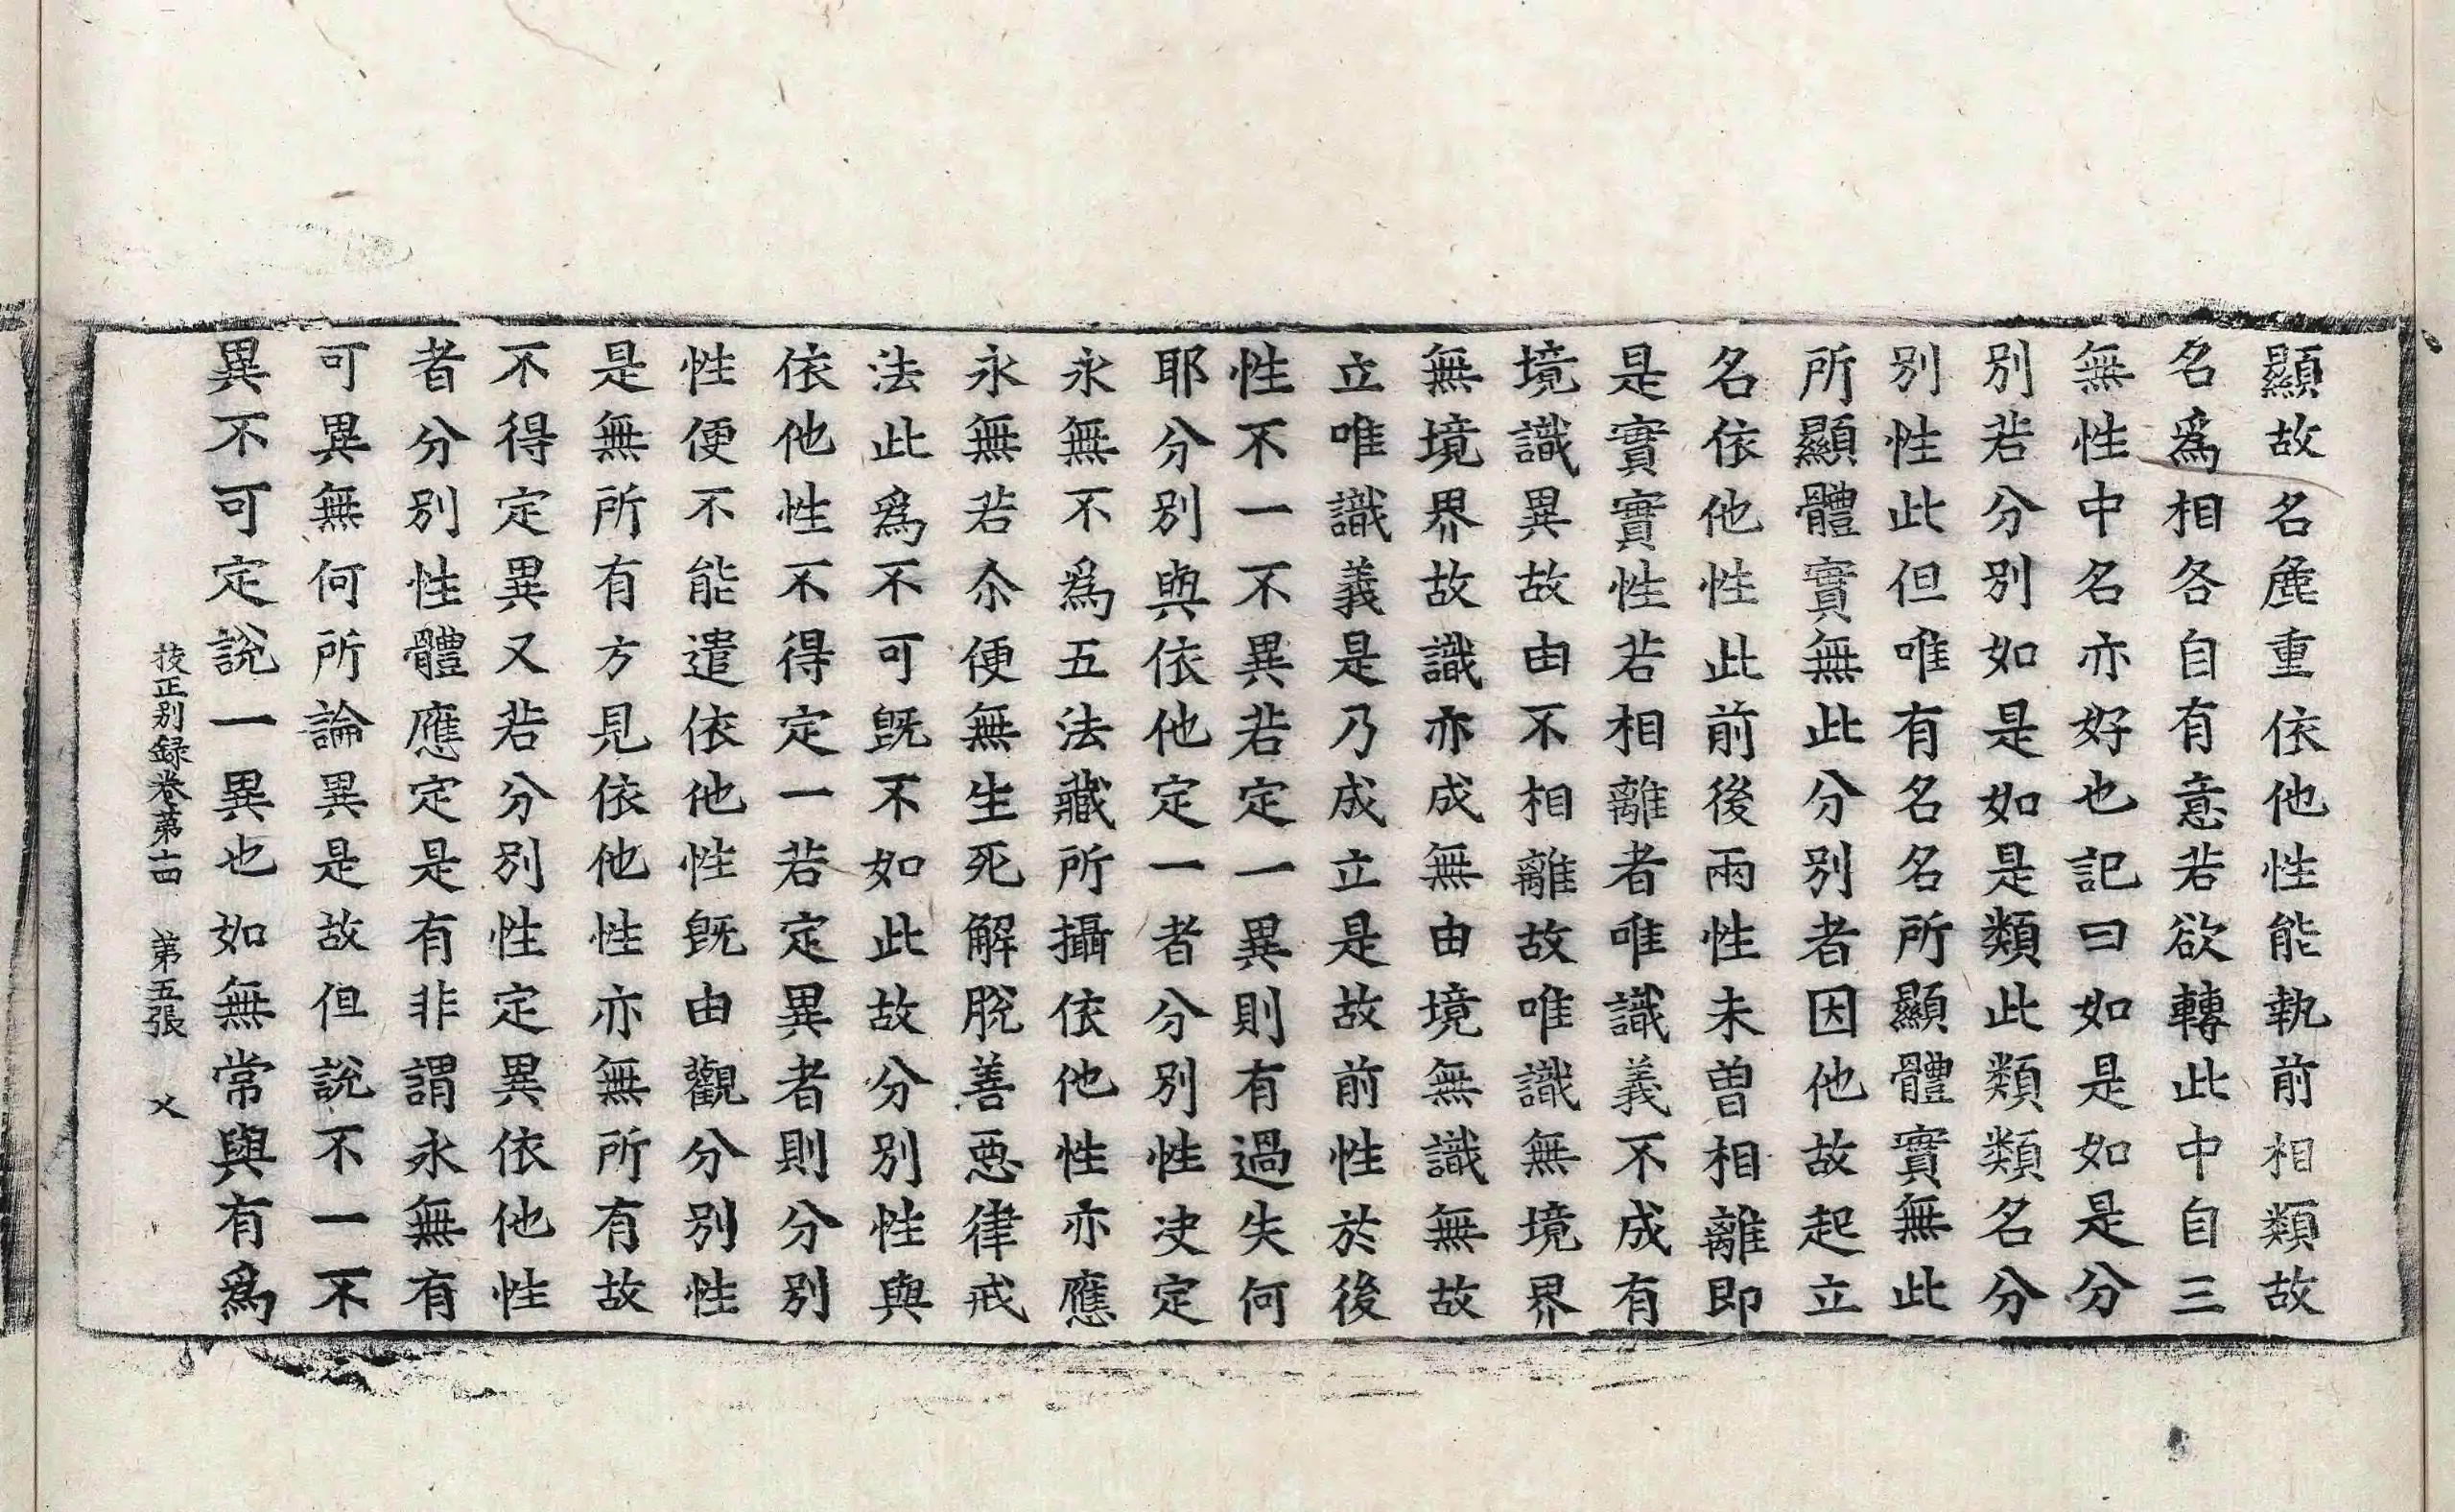 顯故名麁重依他性能執前相類故
名爲相各自有意若欲轉此中自三
無性中名亦好也記曰如是如是分
別若分別如是如是類此類類名分
別性此但唯有名名所顯體實無此
所顯體實無此分別者因他故起立
名依他性此前後兩性未曽相離即
是實實性若相離者唯識義不成有
境識異故由不相離故唯識無境界
無境界故識亦成無由境無識無故
立唯識義是乃成立是故前性於後
性不一不異若定一異則有過失何
耶分別與依他定一者分別性决定
永無不爲五法藏所攝依他性亦應
永無若尒便無生死解脫善惡律戒
法此爲不可旣不如此故分別性與
依他性不得定一若定異者則分別
性便不能遣依他性旣由觀分別性
是無所有方見依他性亦無所有故
不得定異又若分別性定異依他性
者分別性體應定是有非謂永無有
可異無何所論異是故但說不一不
異不可定說一異也如無常與有爲
挍正別録卷苐十四 苐五張 乂